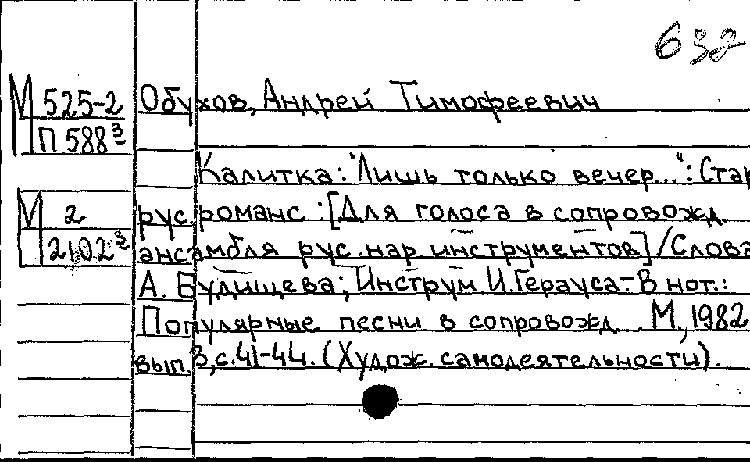 632
М 525-2 Обухов, Андрей Тимофеевич
П 588³
Калитка: "Лишь только вечер...": Стар
М 2 рус. романс: [Для голоса в сопровожд.
2102³ ансамбля рус. нар. инструментов] / Слова
А. Будищева; Инструм И. Герауса.- В нот.:
Популярные песни в сопровожд. М., 1982
вып. 3, с. 41-44. (Худож. самодеятельности).